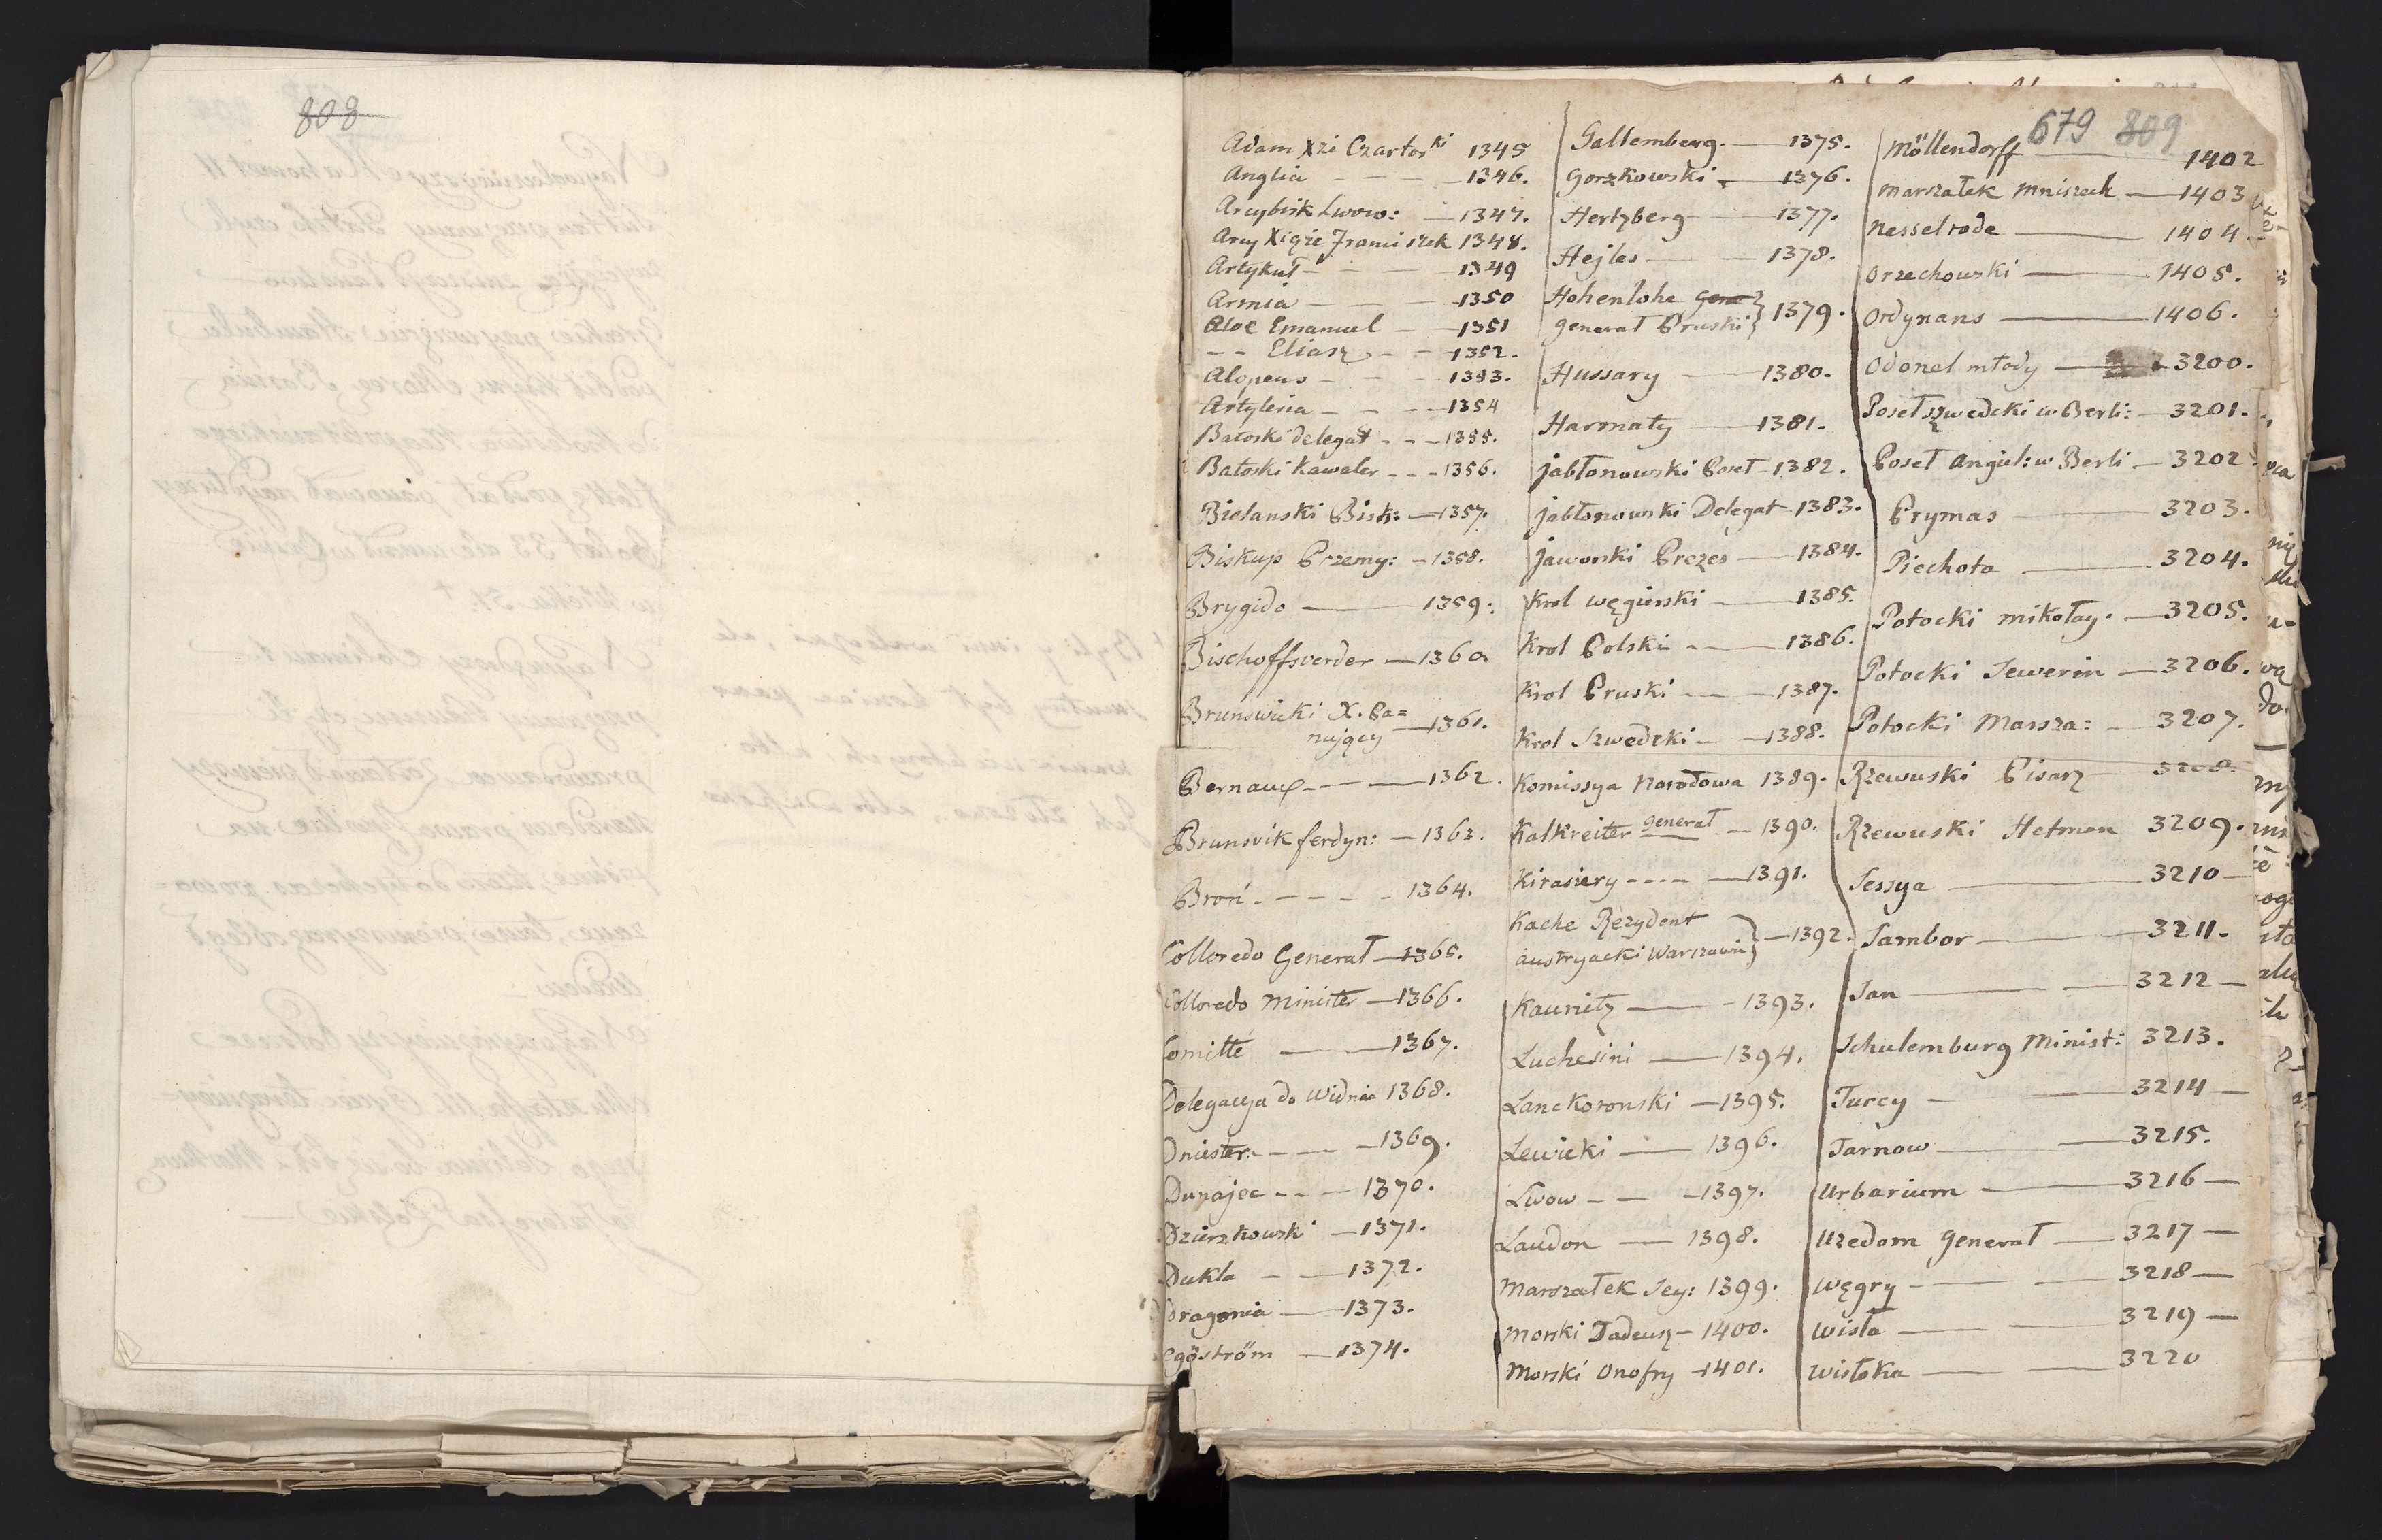 808
679 809
Adam Xże Czartoski 1345
Anglia - - - 1346.
Arcybisk Lwow: - 1347.
Arcy Xiąże Franciszek 1348.
Artykuł - - - 1349
Armia - - - 1350
Aloe Emanuel - 1351
- - Eliasz - - 1352.
Alopeus - - - 1353.
Artyleria - - - 1354
Batoski delegat - - 1355.
Batoski Kawaler - - - 1356.
Bielanski Bisk: - 1357.
Biskup Przemy: - 1358.
Brygido - 1359:
Bischoffsverder - 1360
Brunswicki X. Pa=
nujący - 1361.
Bernaux - - - 1362.
Brunsvik ferdyn: - 1363.
Broń - - - - 1364.
Colloredo Generał - 1365.
Colloredo Minister - 1366.
Comitté - 1367.
Delegacya do Widnia 1368.
Dniester - - - 1369.
Dunajec - - - 1370.
Dzierzkowski - 1371.
Dukla - - 1372.
Dragonia - 1373.
Egöström - 1374.
Gallemberg. - 1375.
Gorzkowski - 1376.
Hertzberg - 1377.
Hejles - 1378.
Hohenlohe Gene
generał Pruski } 1379.
Hussary - 1380.
Harmaty - 1381.
Jabłonowski Poseł - 1382.
Jabłonowski Delegat 1383.
Jaworski Prezes - 1384.
Krol węgierski - 1385.
Krol Polski - - 1386.
Krol Pruski - - 1387.
Krol Szwedzki - 1388.
Komissya Narodowa 1389.
Kalkreiter generał - 1390.
Kirasiery - - - - 1391.
Kache Rezydent
austryacki Warszawie } - 1392.
Kaunitz - 1393.
Luchesini - 1394.
Lanckoronski - 1395.
Lewicki - 1396.
Lwow - - - 1397.
Laudon - 1398.
Marszałek Sey: 1399.
Morski Tadeusz - 1400.
Morski Onofry - 1401.
Möllendorff - 1402
Marszałek Mniszech - 1403
Nesselrode - 1404.
Orzechowski - 1405.
Ordynans - 1406.
Odonel młody - 3200.
Poseł szwedcki w Berli: - 3201.
Poseł Angiel: w Berli - 3202
Prymas - 3203.
Piechota - 3204.
Potocki Mikołay. - 3205.
Potocki Sewerin - 3206.
Potocki Marsza: - 3207.
Rzewuski Pisarz - 3208.
Rzewuski Hetman 3209.
Sessya - 3210 -
Sambor - 3211.
San - 3212 -
Schulemburg Minist: 3213.
Turcy - 3214 -
Tarnow - 3215.
Urbarium - 3216 -
Uzedom Generał - 3217 -
Węgry - 3218 -
Wisła - 3219 -
Wisłoka - 3220